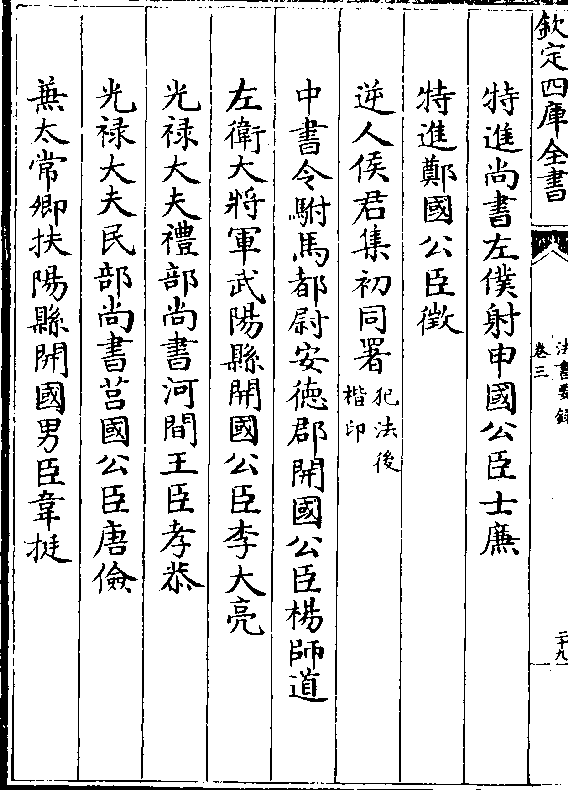 欽定四庫全書
法書要録
卷三
二十九
特進尚書左僕射申國公臣士廉
特進鄭國公臣徵
逆人侯君集初同署犯法後
楷印
中書令駙馬都尉安德郡開國公臣楊師道
左衛大將軍武陽縣開國公臣李大亮
光禄大夫禮部尚書河間王臣孝恭
光禄大夫民部尚書莒國公臣唐儉
兼太常卿扶陽縣開國男臣韋挺